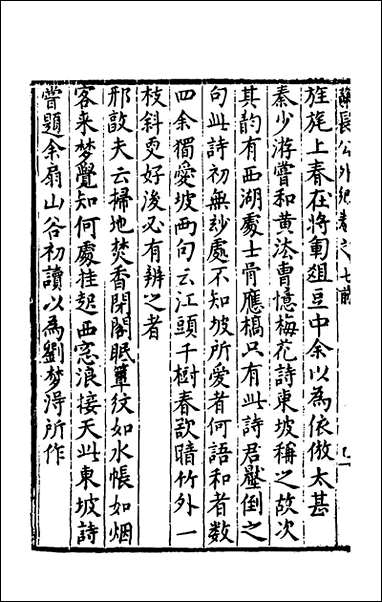 蘇長公外紀卷之七前
旌旄上春在將軍俎豆中余以為依倣太甚
秦少游嘗和黃法曹憶梅花詩東坡稱之故次
其韵有西湖處士骨應槁只有此詩君壓倒之
句此詩初無妙處不知坡所愛者何語和者數
四余獨愛坡兩句云江頭千樹春欲暗竹外一
枝斜更好後必有辨之者
邢敦夫云掃地焚香閉閣眠簟紋如水帳如烟
客来夢覺知何處挂起西窓浪接天此東坡詩
嘗題余扇山谷初讀以為劉夢淂所作